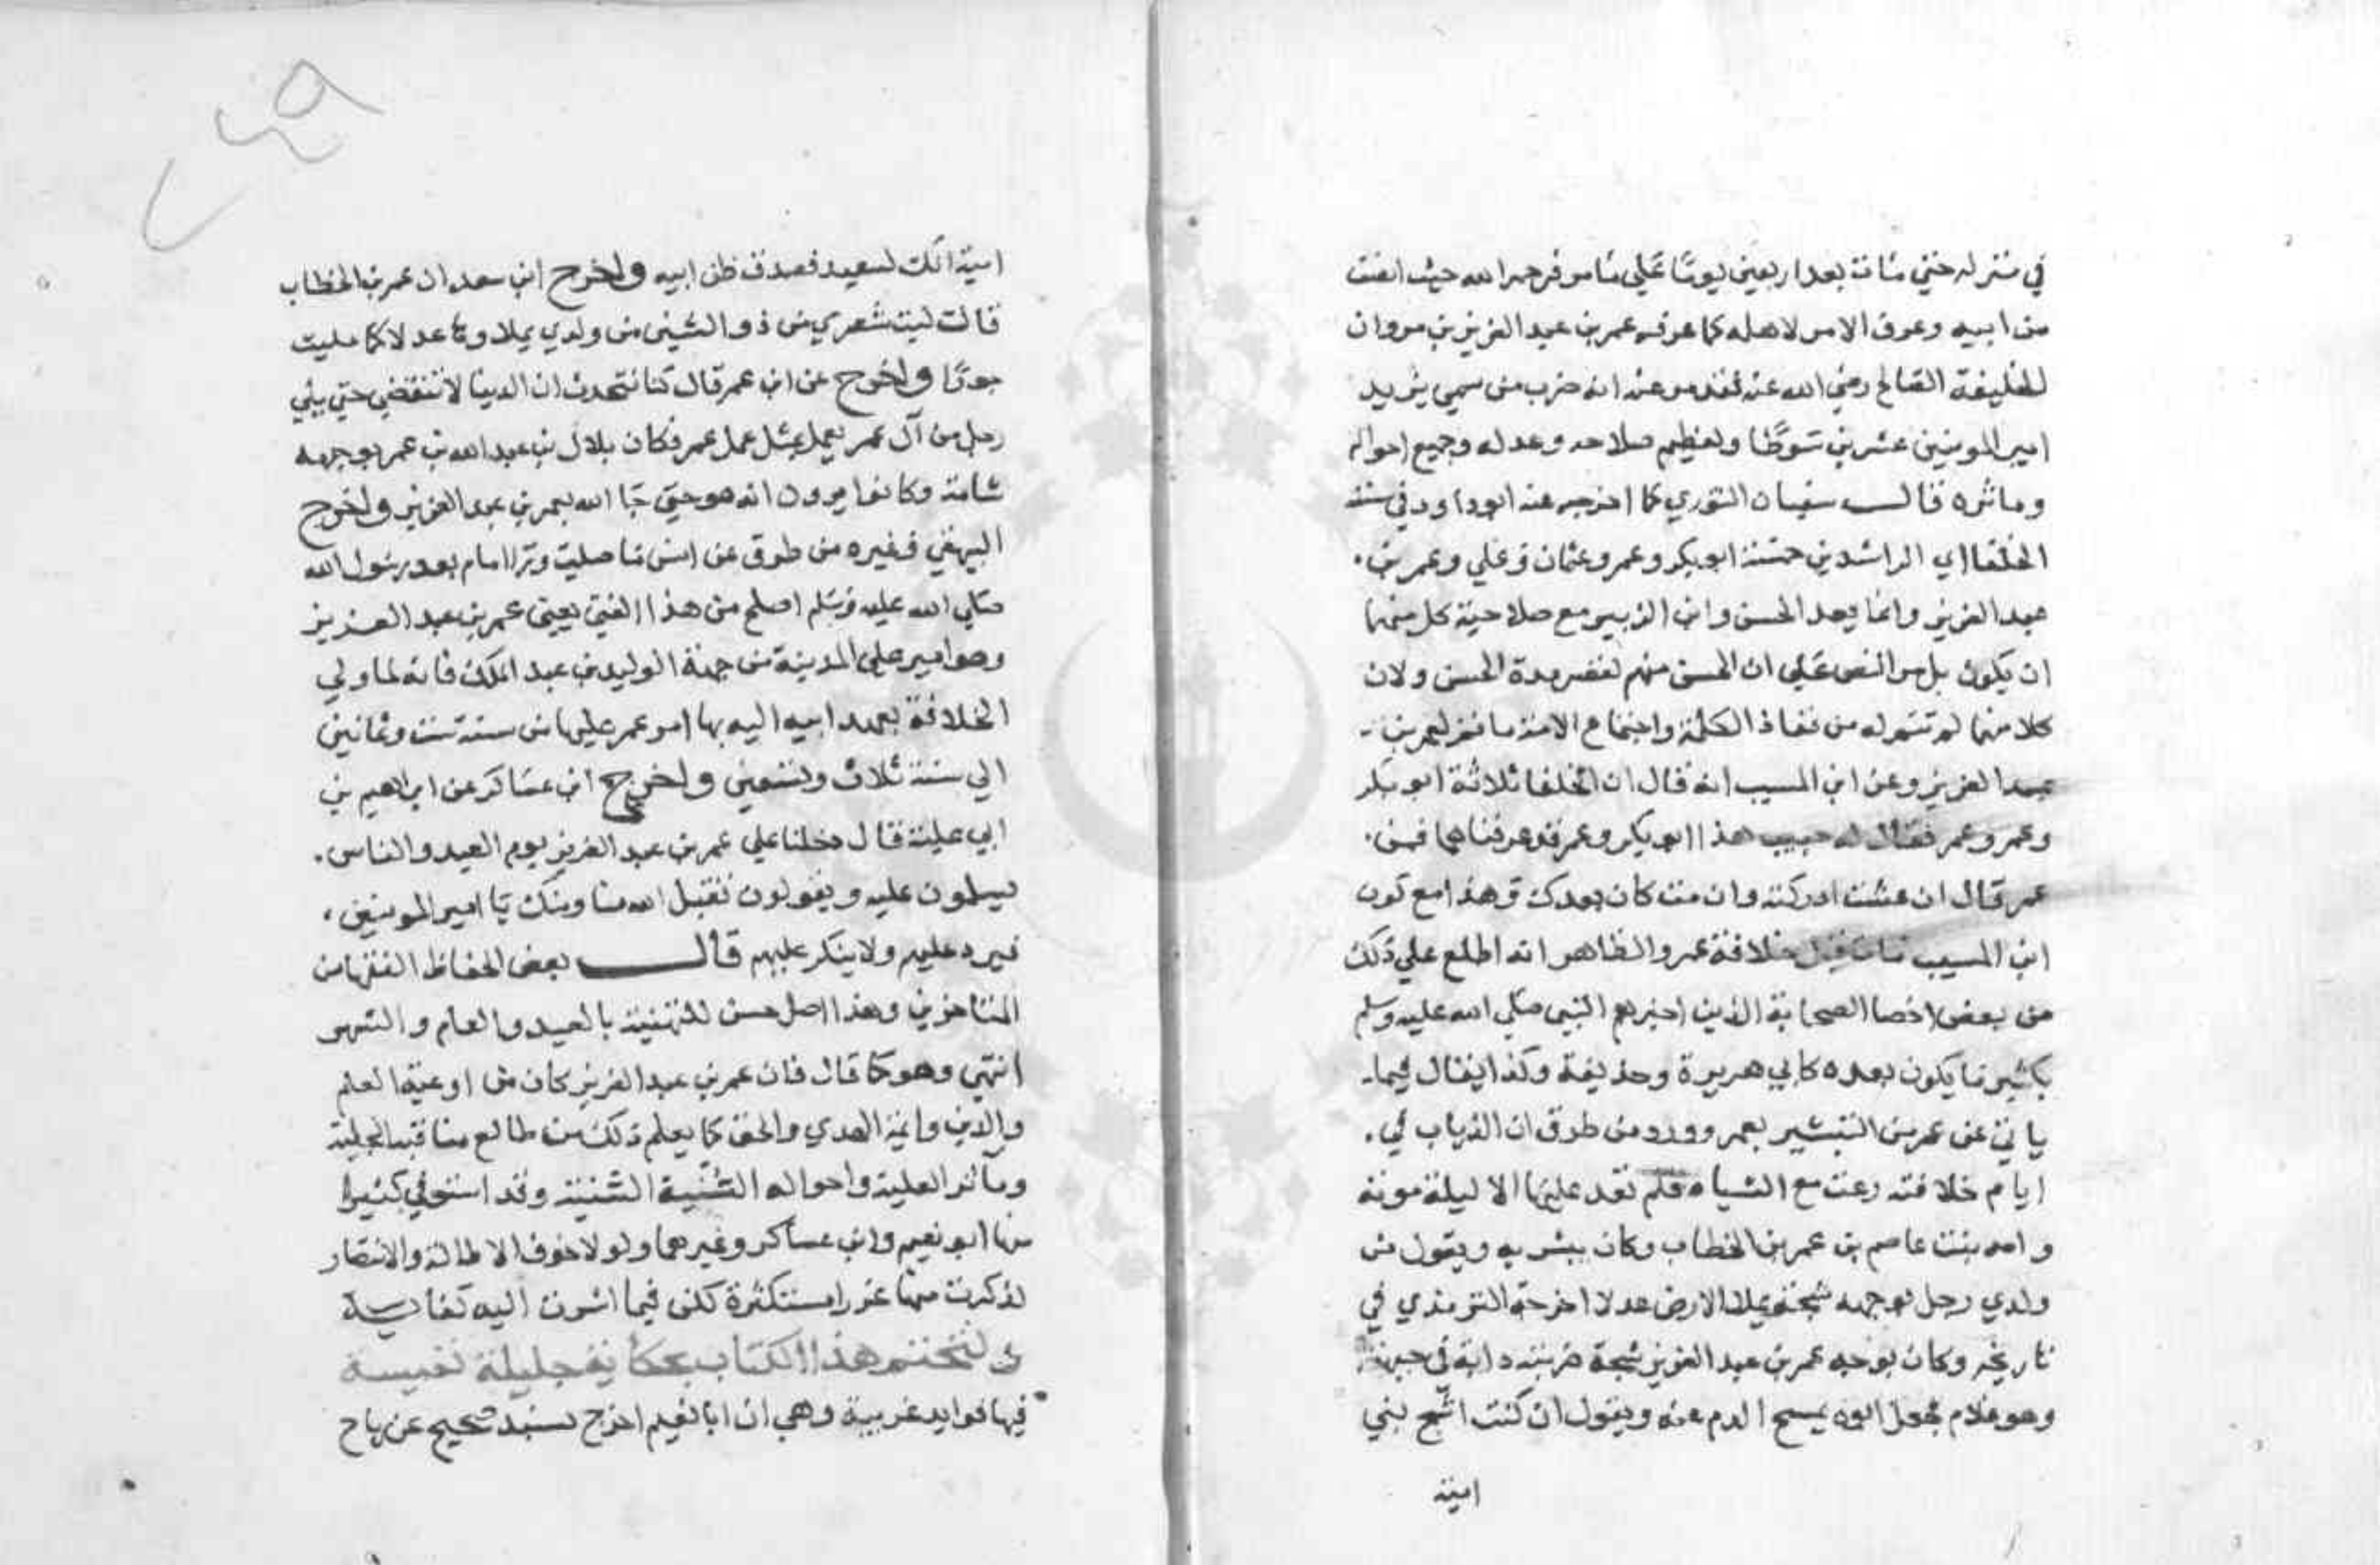 في منزله حتي مات بعد اربعين يوما علي ما مر فرحمه الله حيث انصف
من ابيه وعرف الامر لاهله كما عرفه عمر بن عبد العزيز بن مروان
الخليفة الصالح رضي الله عنه فقد مر عنه انه ضرب من سمي يزيد
امير المومنين عشرين سوطا ولعظيم صلاحه وعدله وجميع احواله
وماثره قال سفيان الثوري كما اخرجه عنه ابو داود في سننه
الخلفا اي الراشدين خمسة ابو بكر وعمر وعثمان وعلي وعمر بن
عبد العزيز وانما يعد الحسن وابن الزبير مع صلاحية كل منهما
ان يكون بل مر النص علي ان الحسن منهم لقصر مدة الحسن ولان
كلا منهما لم تتم له من نفاذ الكلمة واجتماع الامة ما تم لعمر بن
عبد العزيز وعن ابن المسيب انه قال ان الخلفا ثلاثة ابو بكر
وعمر وعمر فقال له حبيب هذا ابو بكر وعمر قد عرفناهما فمن
عمر قال ان عشت ادركته وان مت كان بعدك وهذا مع كون
ابن المسيب مات قبل خلافة عمر والظاهر انه اطلع علي ذلك
من بعض اخصا الصحابة الذين اخبرهم النبي صلي الله عليه وسلم
بكثير مما يكون بعده كابي هريرة وحذيفة وكذا يقال فيما
ياتي عن عمر من التبشير بعمر وورد من طرق ان الذياب في
ايام خلافته رعت مع الشياه فلم تعد عليها الا ليلة موته
وامه بنت عاصم بن عمر بن الخطاب وكان يبشر به ويقول من
ولدي رجل بوجهه شجة يملا الارض عدلا اخرجه الترمذي في
تاريخه وكان بوجه عمر بن عبد العزيز شجة ضربته دابة في جبهته
وهو غلام فجعل ابوه يمسح الدم عنه ويقول ان كنت اشج بني
امية
امية انك لسعيد فصدق ظن ابيه واخرج ابن سعد ان عمر بن الخطاب
قال ليت شعري من ذو الشين من ولدي يملاوها عدلا كما مليت
جورا واخرج عن ابن عمر قال كنا نتحدث ان الدنيا لا تنقضي حتي يلي
رجل من آل عمر يعمل بمثل عمل عمر فكان بلال بن عبد الله بن عمر بوجهه
شامة وكانوا يرون انه هو حتي جا الله بعمر بن عبد العزيز واخرج
البيهقي وغيره من طرق عن انس ما صليت ورا امام بعد رسول الله
صلي الله عليه وسلم اصلح من هذا الفتي يعني عمر بن عبد العزيز
وهو امير علي المدينة من جهة الوليد بن عبد الملك فانه لما ولي
الخلافة بعهد ابيه اليه بها امر عمر عليها من سنة ست وثمانين
الي سنة ثلاث وتسعين واخرج ابن عساكر عن ابراهيم بن
ابي علية قال دخلنا علي عمر بن عبد العزيز يوم العيد والناس
يسلمون عليه ويقولون تقبل الله منا ومنك يا امير المومنين
فيرد عليهم ولا ينكر عليهم قال بعض الحفاظ الفقها من
المتاخرين وهذا اصل حسن للتهنية بالعيد والعام والشهر
انتهي وهو كما قال فان عمر بن عبد العزيز كان من اوعية العلم
والدين وائمة الهدي والحق كما يعلم ذلك من طالع مناقبه الجليلة
ومآثر العلية واحواله السنية وقد استوفي كثيرا
منها ابو نعيم وابن عساكر وغيرهما ولولا خوف الاطالة والانتشار
لذكرت منها غررا مستكثرة لكن فيما اشرت اليه كفاية
ولنختم هذا الكتاب بحكاية جليلة نفيسة
فيها فوايد غريبة وهي ان ابا نعيم اخرج بسند صحيح عن رباح